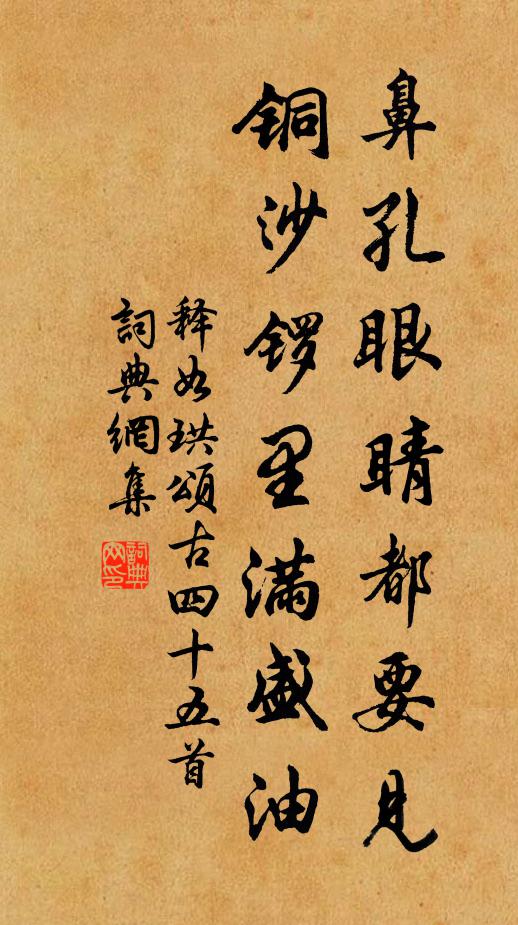 鼻孔眼睛都要見
銅沙锣里满盛油
释如珙頌古四十五首
詞典網集
詞典網印